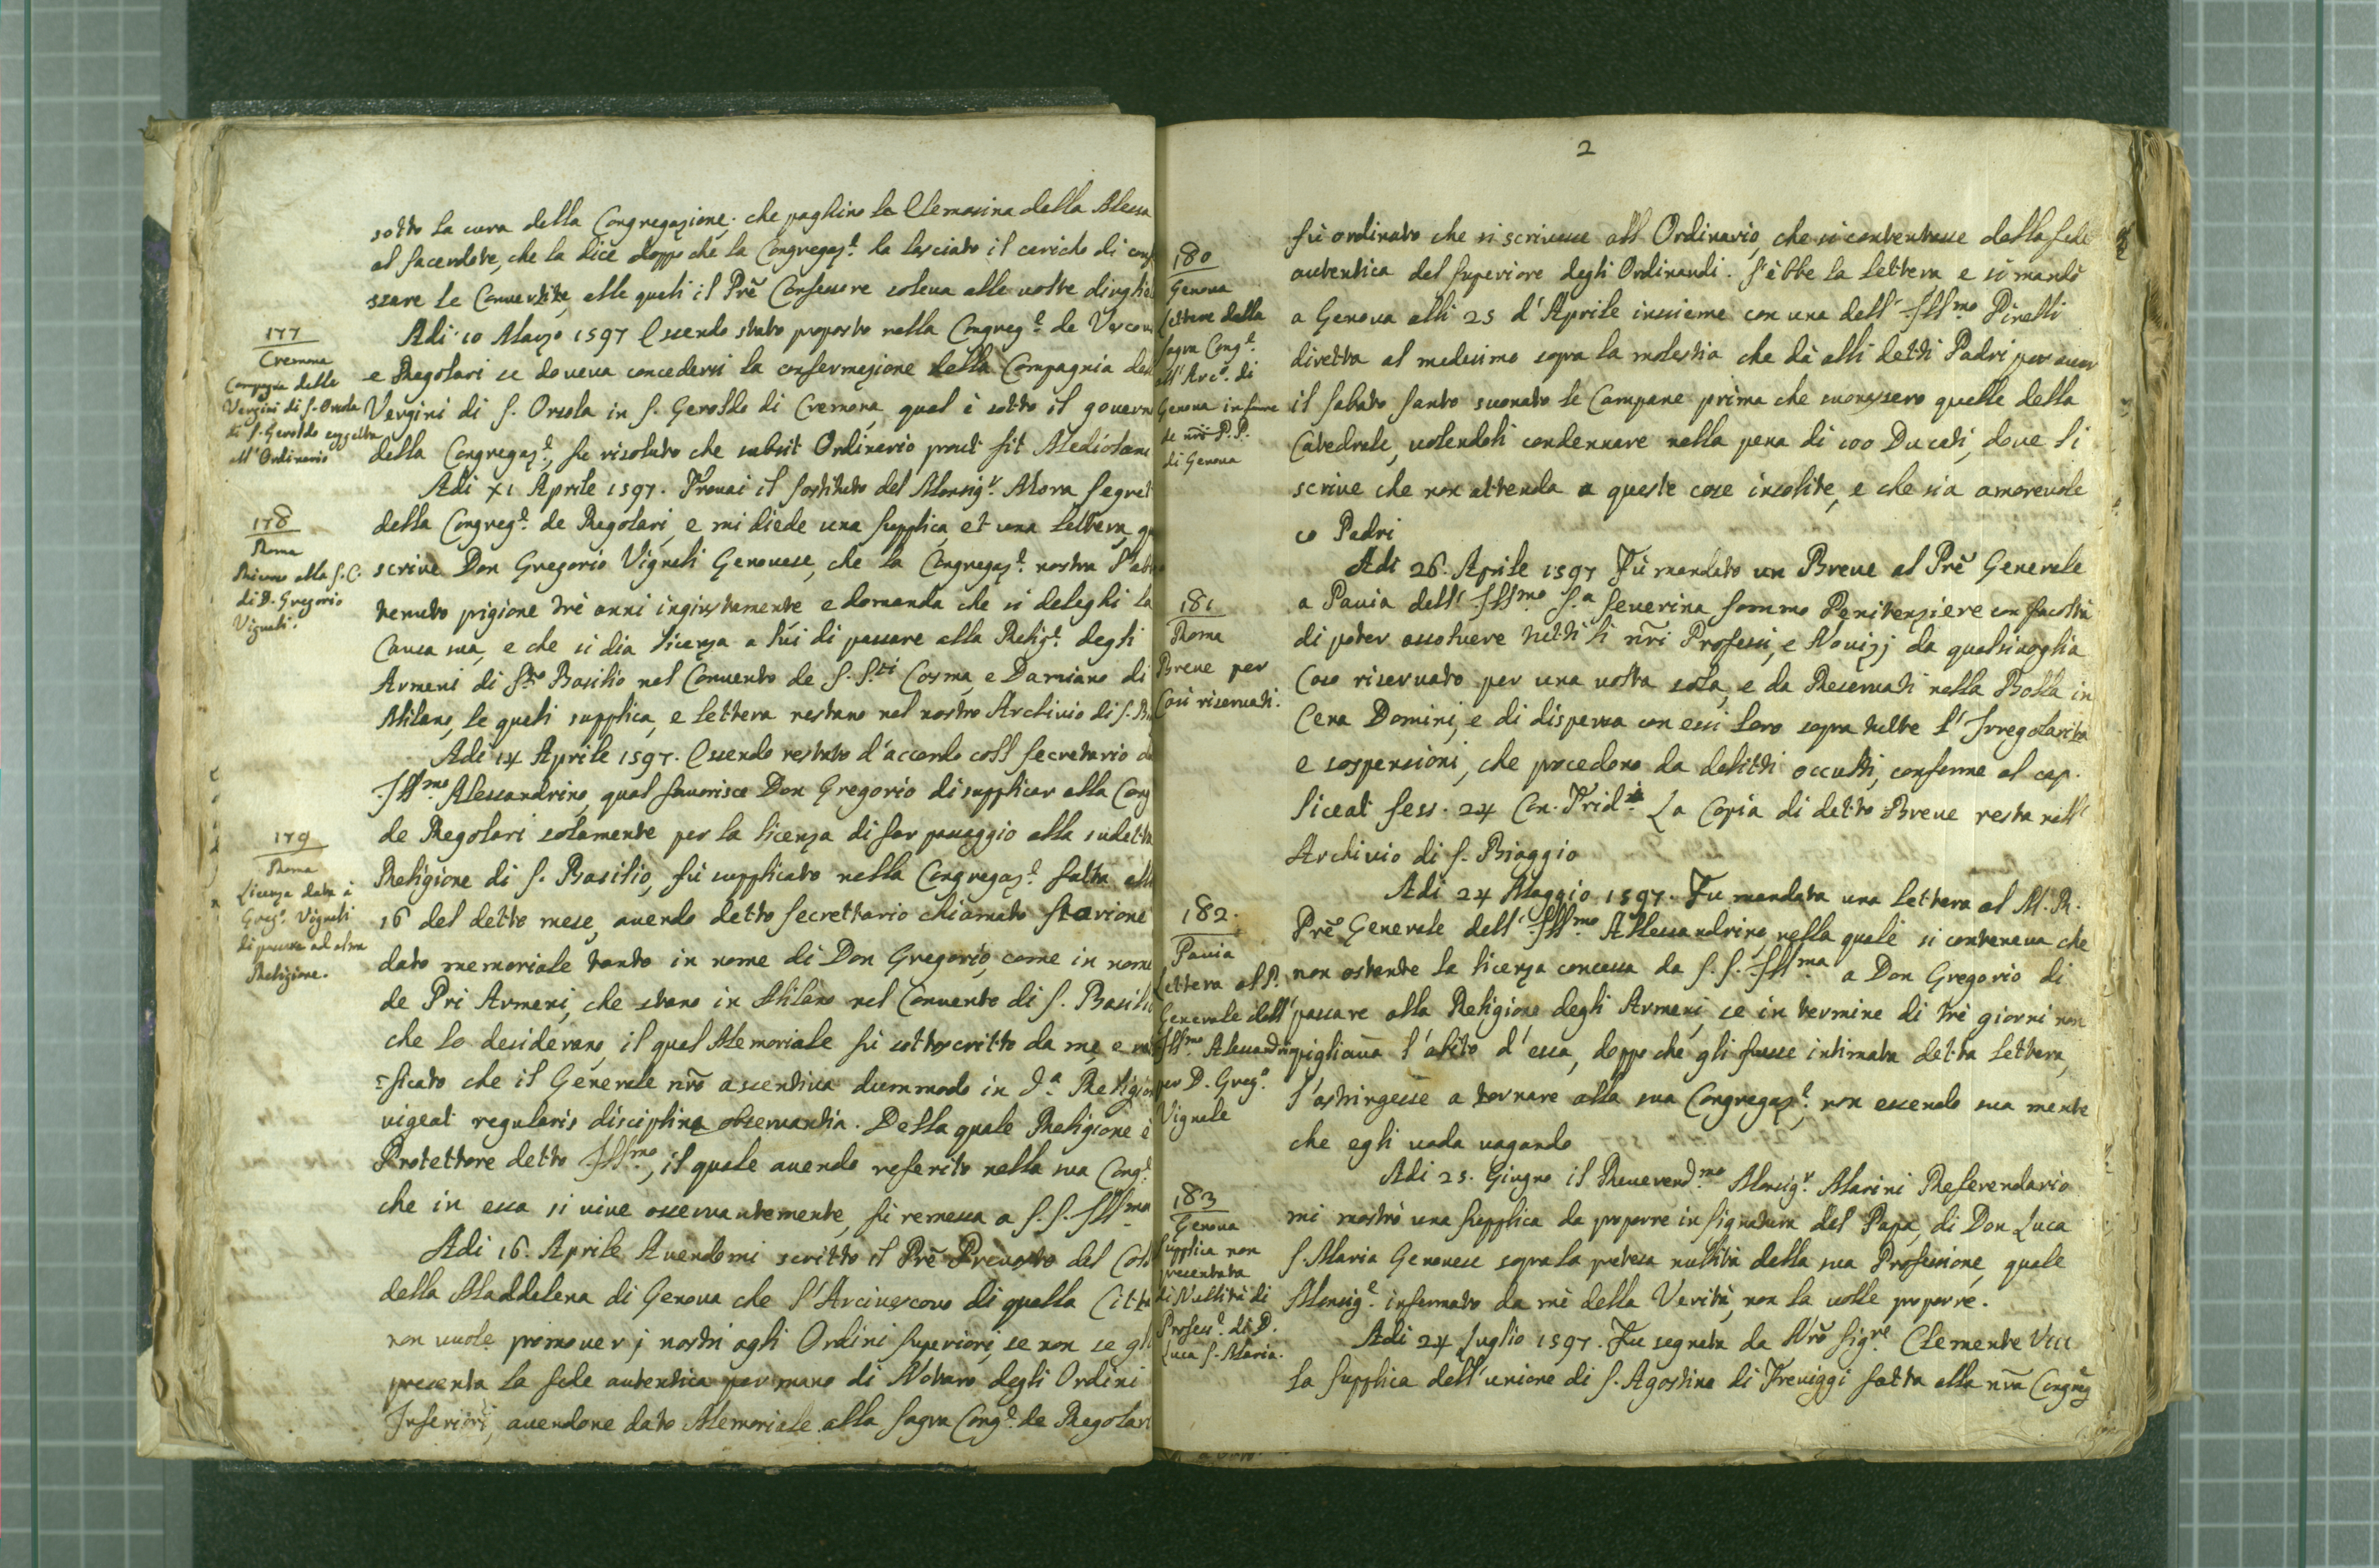 sotto la cura della Congregazione, che paghino la Elemosina della Messa
al sacerdote, che la dice doppo che la Congregaz.e ha lasciato il caricho di conf
ssare le Convertite, alle quali il Prē Confessore soleva alle volte dirglie
177
Cremona
Compagnia delle
Vergini di S. Orsola
di S. Geroldo soggetta
all'Ordinario
Adi 10 Marzo 1597 Essendo stato proposto nella Congreg.e de Vescov
e Regolari se doveva concedersi la confermazione della Compagnia del
Vergini di S. Orsola in S. Geroldo di Cremona, qual è sotto il govern
della Congregaz.e, fu risoluto che subsit Ordinario prout fit Mediolani
178
Roma
Ricorso alla S. C.
di D. Gregorio
Vignali.
Adi XI Aprile 1597. Trovai il sostituto del Monsig.r Mora Segret
della Congreg.e de Regolari, e mi diede una supplica, et una lettera, qu
scrive Don Gregorio Vignali Genovese, che la Congregaz.e nostra l'ab
tenuto prigione trè anni ingiustamente e domanda che si deleghi la
Causa sua, e che si dia licenza a lui di passare alla Relig.e degli
Armeni di S.to Basilio nel Convento de S. S.ti Cosma, e Damiano di
Milano, le quali supplica, e lettera restano nel nostro Archivio di S. Bi
179
Roma
Licenza data à
Greg.o Vignali
di passare ad altra
Religione.
Adi 14 Aprile 1597. Essendo restato d'accordo coll Secretario d
Ill.mo Alessandrino, qual favorisce Don Gregorio di supplicar alla Cong
de Regolari solamente per la licenza di far passaggio alla sudetta
Religione di S. Basilio, fù supplicato nella Congregaz.e fatta alli
16 del detto mese, avendo detto Secrettario chiamato Starione
dato memoriale tanto in nome di Don Gregorio, come in nome
de Pri Armeni, che stano in Milano nel Convento di S. Basilio
che lo desiderano, il qual Memoriale fù sottoscritto da me e
ficato che il Generale nrō ascentiva dummodo in d.a Religion
vigeat regularis disciplina observantia. Della quale Religione è
Protettore detto Ill.mo, il quale avendo referito nella sua Cong.e
che in essa si vive osservantemente, fù remessa a S. S. Ill.ma
Adi 16. Aprile Avendomi scritto il Prē Prevosto del Coll
della Maddalena di Genova che l'Arcivescovo di quella Citt
non vuole promover j nostri agli Ordini Superiori, se non se gli
presenta la fede autentica per mano di Notaro degli Ordini
Inferiori, avendone dato Memoriale alla Sagra Cong.e de Regolari
2
180
Genova
Lettere della
Sagra Cong.e
all'Arc.o di
Genova in favore
de nrī P. P.
di Genova
fù ordinato che si scrivesse all Ordinario, che si contentasse della fede
autentica del Superiore degli Ordinandi. S'ebbe la lettera e si mandò
a Genova alli 25 d'Aprile insieme con una dell' Ill.mo Pinelli
diretta al medesimo sopra la molestia che dà alli detti Padri per aver
il Sabato Santo suonato le Campane prima che suonassero quelle della
Catedrale, volendoli condennare nella pena di 100 Ducati, dove li
scrive che non attenda a queste cose insolite, e che sia amorevole
co Padri
181
Roma
Breve per
Casi riservati.
Adi 26. Aprile 1597 Fù mandato un Breve al Prē Generale
a Pavia dell' Ill.mo S.a Severina Sommo Penitenziere con facoltà
di poter assolvere tutti li nrī Professi, e Novizj da qualsivoglia
Caso riservato per una volta sola, e da Reservati nella Bolla in
Cena Domini, e di dispensa con essi loro sopra tutte l'Irregolarità
e sospensioni, che procedono da delitti occulti, conforme al cap.
liceat sess. 24 Con. Trid.i La Copia di detto Breve resta nell'
Archivio di S. Biaggio
182.
Pavia
Lettera al P.
Generale dell'
Ill.mo Alessandrino
per D. Greg.o
Vignale
Adi 24 Maggio 1597. Fu mandata una lettera al M. R.
Prē Generale dell' Ill.mo Allessandrino, nella quale si conteneva che
non ostante la licenza concessa da S. S. Ill.ma a Don Gregorio di
passare alla Religione degli Armeni, se in termine di trè giorni non
pigliava l'abito d'essa, doppo che gli fusse intimata detta lettera,
l'astringesse a tornare alla sua Congregaz.e non essendo sua mente
che egli vada vagando
183
Genova
Supplica non
presentata
di Nullità di
Profess.e di D.
Luca S. Maria.
Adi 25. Giugno il Reverend.mo Monsig.r Marini Referendario
mi mostrò una supplica da proporre in signatura del Papa, di Don Luca
S. Maria Genovese sopra la pretesa nullità della sua Professione, quale
Monsig.e informato da mè della Verità, non la volle proporre.
Adi 24 Luglio 1597. Fu segnata da Nrō Sig.re Clemente VIII
la supplica dell'unione di S. Agostino di Treviggi fatta alla nrā Congreg